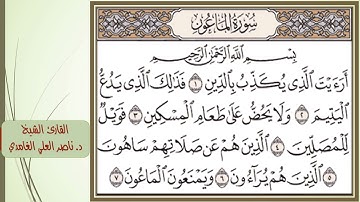 سُورَةُ المَاعُونِ
بِسْمِ اللَّهِ الرَّحْمَٰنِ الرَّحِيمِ
أَرَءَيْتَ الَّذِي يُكَذِّبُ بِالدِّينِ ١ فَذَٰلِكَ الَّذِي يَدُعُّ
الْيَتِيمَ ٢ وَلَا يَحُضُّ عَلَىٰ طَعَامِ الْمِسْكِينِ ٣ فَوَيْلٌ
لِّلْمُصَلِّينَ ٤ الَّذِينَ هُمْ عَن صَلَاتِهِمْ سَاهُونَ
٥ الَّذِينَ هُمْ يُرَاءُونَ ٦ وَيَمْنَعُونَ الْمَاعُونَ ٧
القارئ الشيخ
د. ناصر العلي الغامدي